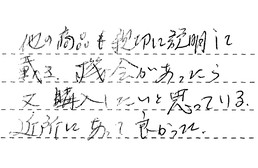 他の商品も親切に説明して
戴き、機会があったら
又購入したいと思っている。
近所にあって良かった。